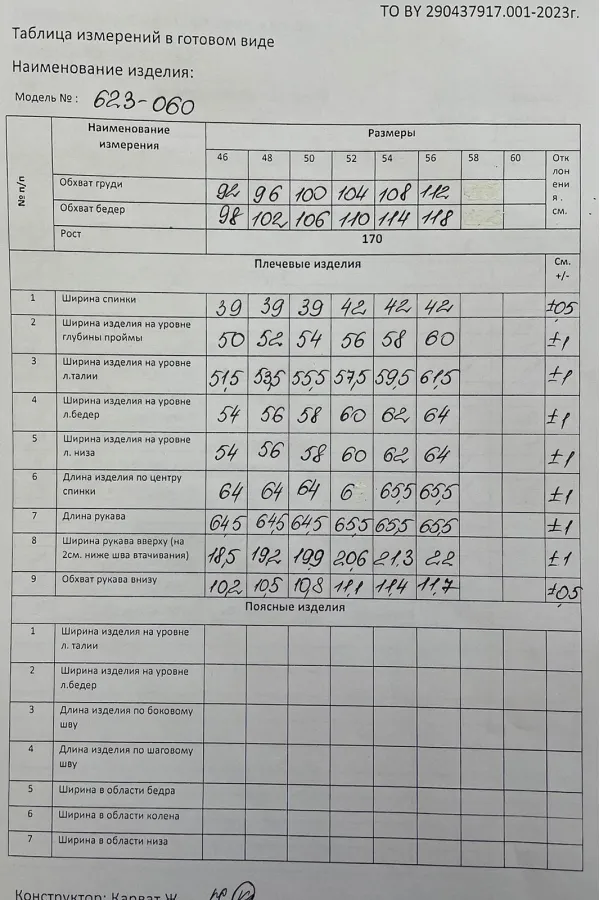 ТО BY 290437917.001-2023г.
Таблица измерений в готовом виде
Наименование изделия:
Модель № : 623-060
№ п/п
Наименование измерения Размеры
46 48 50 52 54 56 58 60 Отклонения. см.
Обхват груди 92 96 100 104 108 112
Обхват бедер 98 102 106 110 114 118
Рост 170
Плечевые изделия См. +/-
1 Ширина спинки 39 39 39 42 42 42 ±0,5
2 Ширина изделия на уровне глубины проймы 50 52 54 56 58 60 ±1
3 Ширина изделия на уровне л.талии 51,5 53,5 55,5 57,5 59,5 61,5 ±1
4 Ширина изделия на уровне л.бедер 54 56 58 60 62 64 ±1
5 Ширина изделия на уровне л. низа 54 56 58 60 62 64 ±1
6 Длина изделия по центру спинки 64 64 64 6 65,5 65,5 ±1
7 Длина рукава 64,5 64,5 64,5 65,5 65,5 65,5 ±1
8 Ширина рукава вверху (на 2см. ниже шва втачивания) 18,5 19,2 19,9 20,6 21,3 22 ±1
9 Обхват рукава внизу 10,2 10,5 10,8 11,1 11,4 11,7 ±0,5
Поясные изделия
1 Ширина изделия на уровне л. талии
2 Ширина изделия на уровне л.бедер
3 Длина изделия по боковому шву
4 Длина изделия по шаговому шву
5 Ширина в области бедра
6 Ширина в области колена
7 Ширина в области низа
Конструктор: Карват Ж.